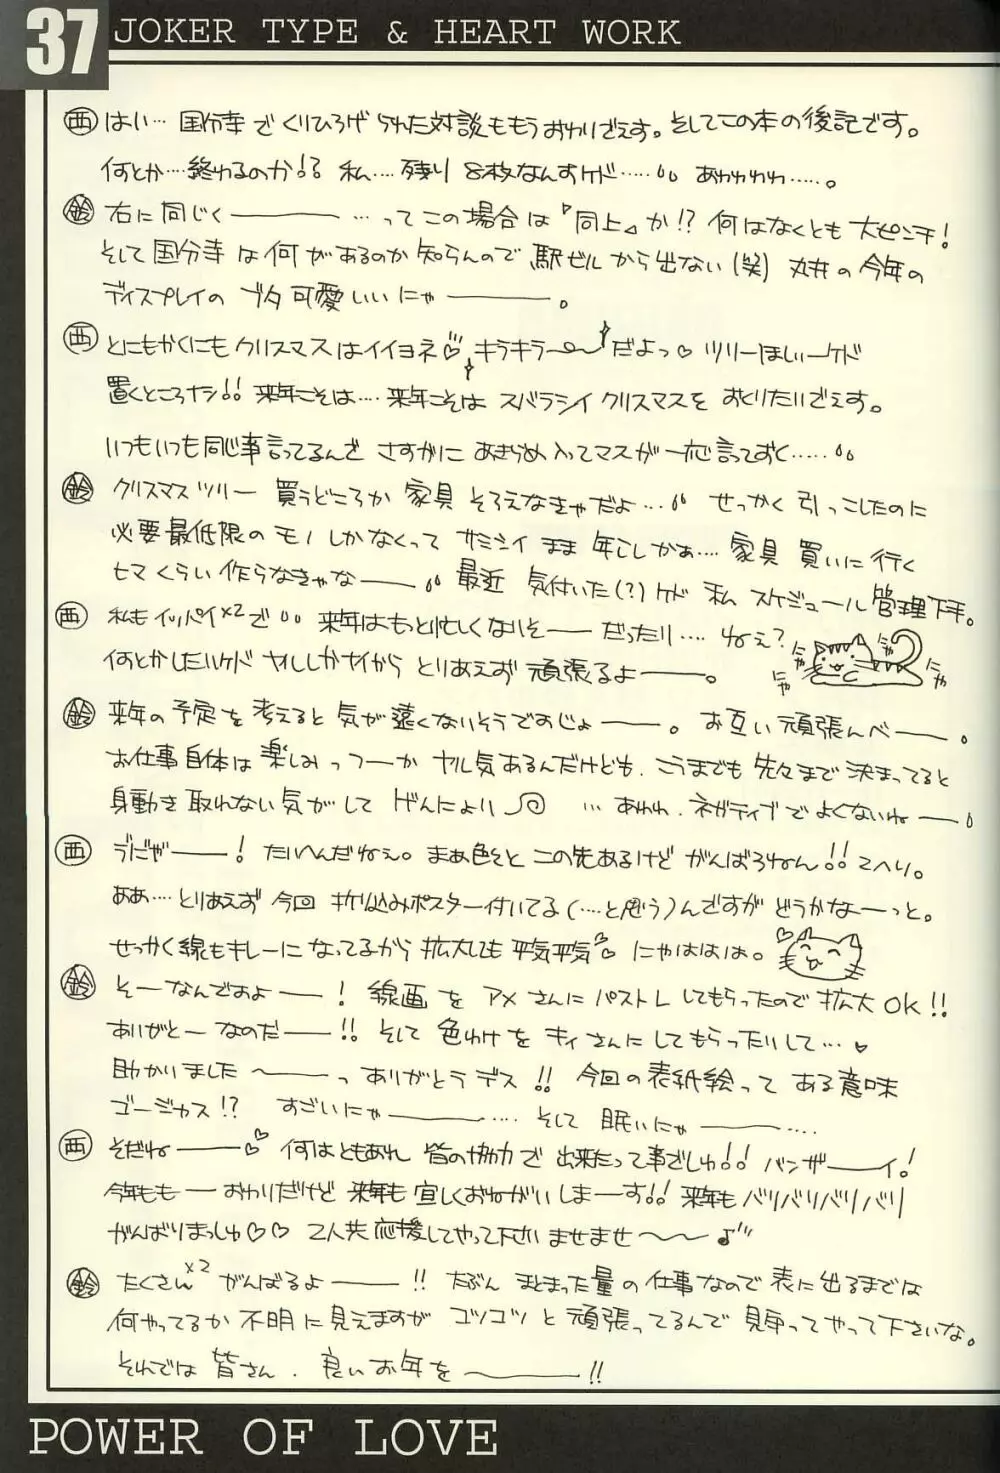 37 JOKER TYPE & HEART WORK
西 はい… 国分寺でくりひろげられた対談ももうおわりでえす。そしてこの本の後記です。
何とか…終わるのか!? 私…残り8枚なんすケド…… あわわわわ……。
鈴 右に同じく――― …ってこの場合は『同上』か!? 何はなくとも大ピンチ!
そして国分寺は何があるのか知らんので駅ビルから出ない(笑) 丸井の今年の
ディスプレイのブタ可愛いいにゃ―――。
西 とにもかくにもクリスマスはイイヨネ♡キラキラ〜だよっ♡ ツリーほしいーケド
置くところナシ!! 来年こそは…来年こそはスバラシイクリスマスをおくりたいでえす。
いつもいつも同じ事言ってるんで さすがに あきらめ入ってマスが一応言っておく……
鈴 クリスマスツリー 買うどころか 家具 そろえなきゃだよ… せっかく引っこしたのに
必要最低限のモノしかなくって サミシイまま 年こしかあ… 家具 買いに行く
ヒマくらい作らなきゃな―― 最近 気付いた(?)ケド 私 スケジュール管理下手。
西 私もイッパイ×2で 来年はもっと忙しくないそ――だったり… ねぇ?
にゃ にゃ にゃ にゃ
何とかしたいケド ヤルしかナイから とりあえず 頑張るよ――。
鈴 来年の予定を考えると気が遠くないそうですじょ――。お互い頑張んべ――。
お仕事自体は楽しみっつーか ヤル気あるんだけども、こうまでも先々まで決まってると
身動き取れない気がして げんにょり …あわわ、ネガティブでよくないね――
西 うにゃ――! たいへんだねぇ。まあ色そと この先あるけど がんばろねん!! てへり。
ああ…とりあえず 今回 折り込みポスター付いてる(…と思う)んですが どうかなーっと。
せっかく線もキレーになってるから 拡大しても平気平気♡ にゃははは。
鈴 そーなんですよ――! 線画を アメさんに パストレしてもらったので拡大OK!!
ありがとーなのだ――!! そして 色わけを キィさんにしてもらったりして…♥
助かりました〜っ ありがとうデス!! 今回の表紙絵って ある意味
ゴージャス!? すごいにゃ――… そして 眠いにゃ――…
西 そだね――♡ 何はともあれ 皆の協力で出来たって事ざしゅ!! バンザ――イ!
今年ももーおわりだけど 来年も宜しくおねがいしまーす!! 来年もバリバリバリバリ
がんばりまっしゅ♡♡ 2人共応援してやって下さいませませ〜〜♪
鈴 たくさん×2 がんばるよ――!! たぶん まとまった量の仕事なので 表に出るまでは
何やってるか不明に見えますが コツコツと頑張ってるんで見守ってやって下さいな。
それでは皆さん、良いお年を――!!
POWER OF LOVE